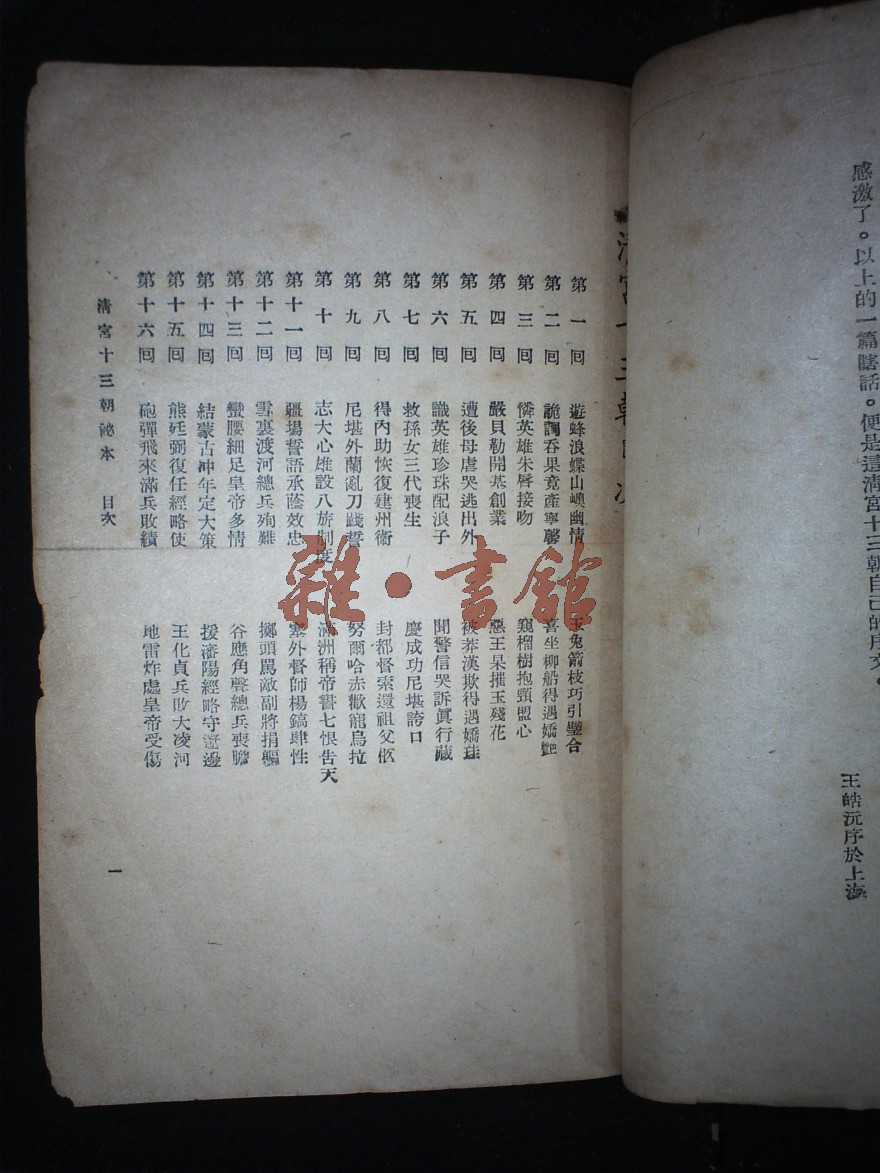 感激了。以上的一篇瞎話。便是這清宮十三朝自己的序文。
王皓沅序於上海
清宮十三朝目次
第一回 遊蜂浪蝶山嶼幽情 玉兔箭枝巧引璧合
第二回 詭譎吞果竟產寧馨 喜坐柳船得遇嬌艷
第三回 憐英雄朱唇接吻 窺榴樹抱頸盟心
第四回 嚴貝勒開基創業 惡王杲摧玉殘花
第五回 遭後母虐哭逃出外 被莽漢欺得遇嬌珪
第六回 識英雄珍珠配浪子 聞警信哭訴眞行藏
第七回 救孫女三代喪生 慶成功尼堪誇口
第八回 得內助恢復建州衛 封都督索還祖父柩
第九回 尼堪外蘭亂刀踐誓 努爾哈赤歡寵烏拉
第十回 志大心雄設八旂制度 滿洲稱帝書七恨告天
第十一回 疆場誓語承蔭效忠 塞外督師楊鎬肆性
第十二回 雪裏渡河總兵殉難 擲頭罵敵副將捐軀
第十三回 蠻腰細足皇帝多情 谷應角聲總兵喪膽
第十四回 結蒙古冲年定大策 援瀋陽經略守遼邊
第十五回 熊廷弼復任經略使 王化貞兵敗大凌河
第十六回 砲彈飛來滿兵敗績 地雷炸處皇帝受傷
清宮十三朝祕本 目次
一
雜·書館